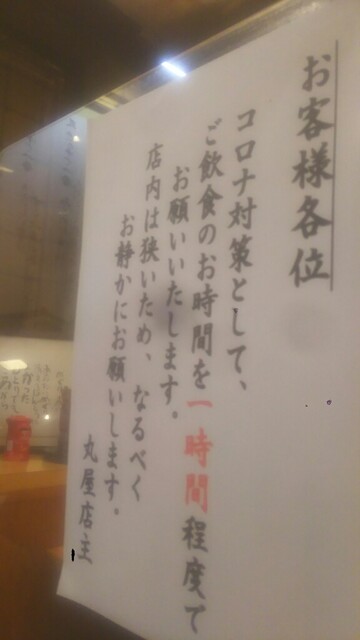 お客様各位
コロナ対策として、
ご飲食のお時間を一時間程度で
お願いいたします。
店内は狭いため、なるべく
お静かにお願いします。
丸屋店主